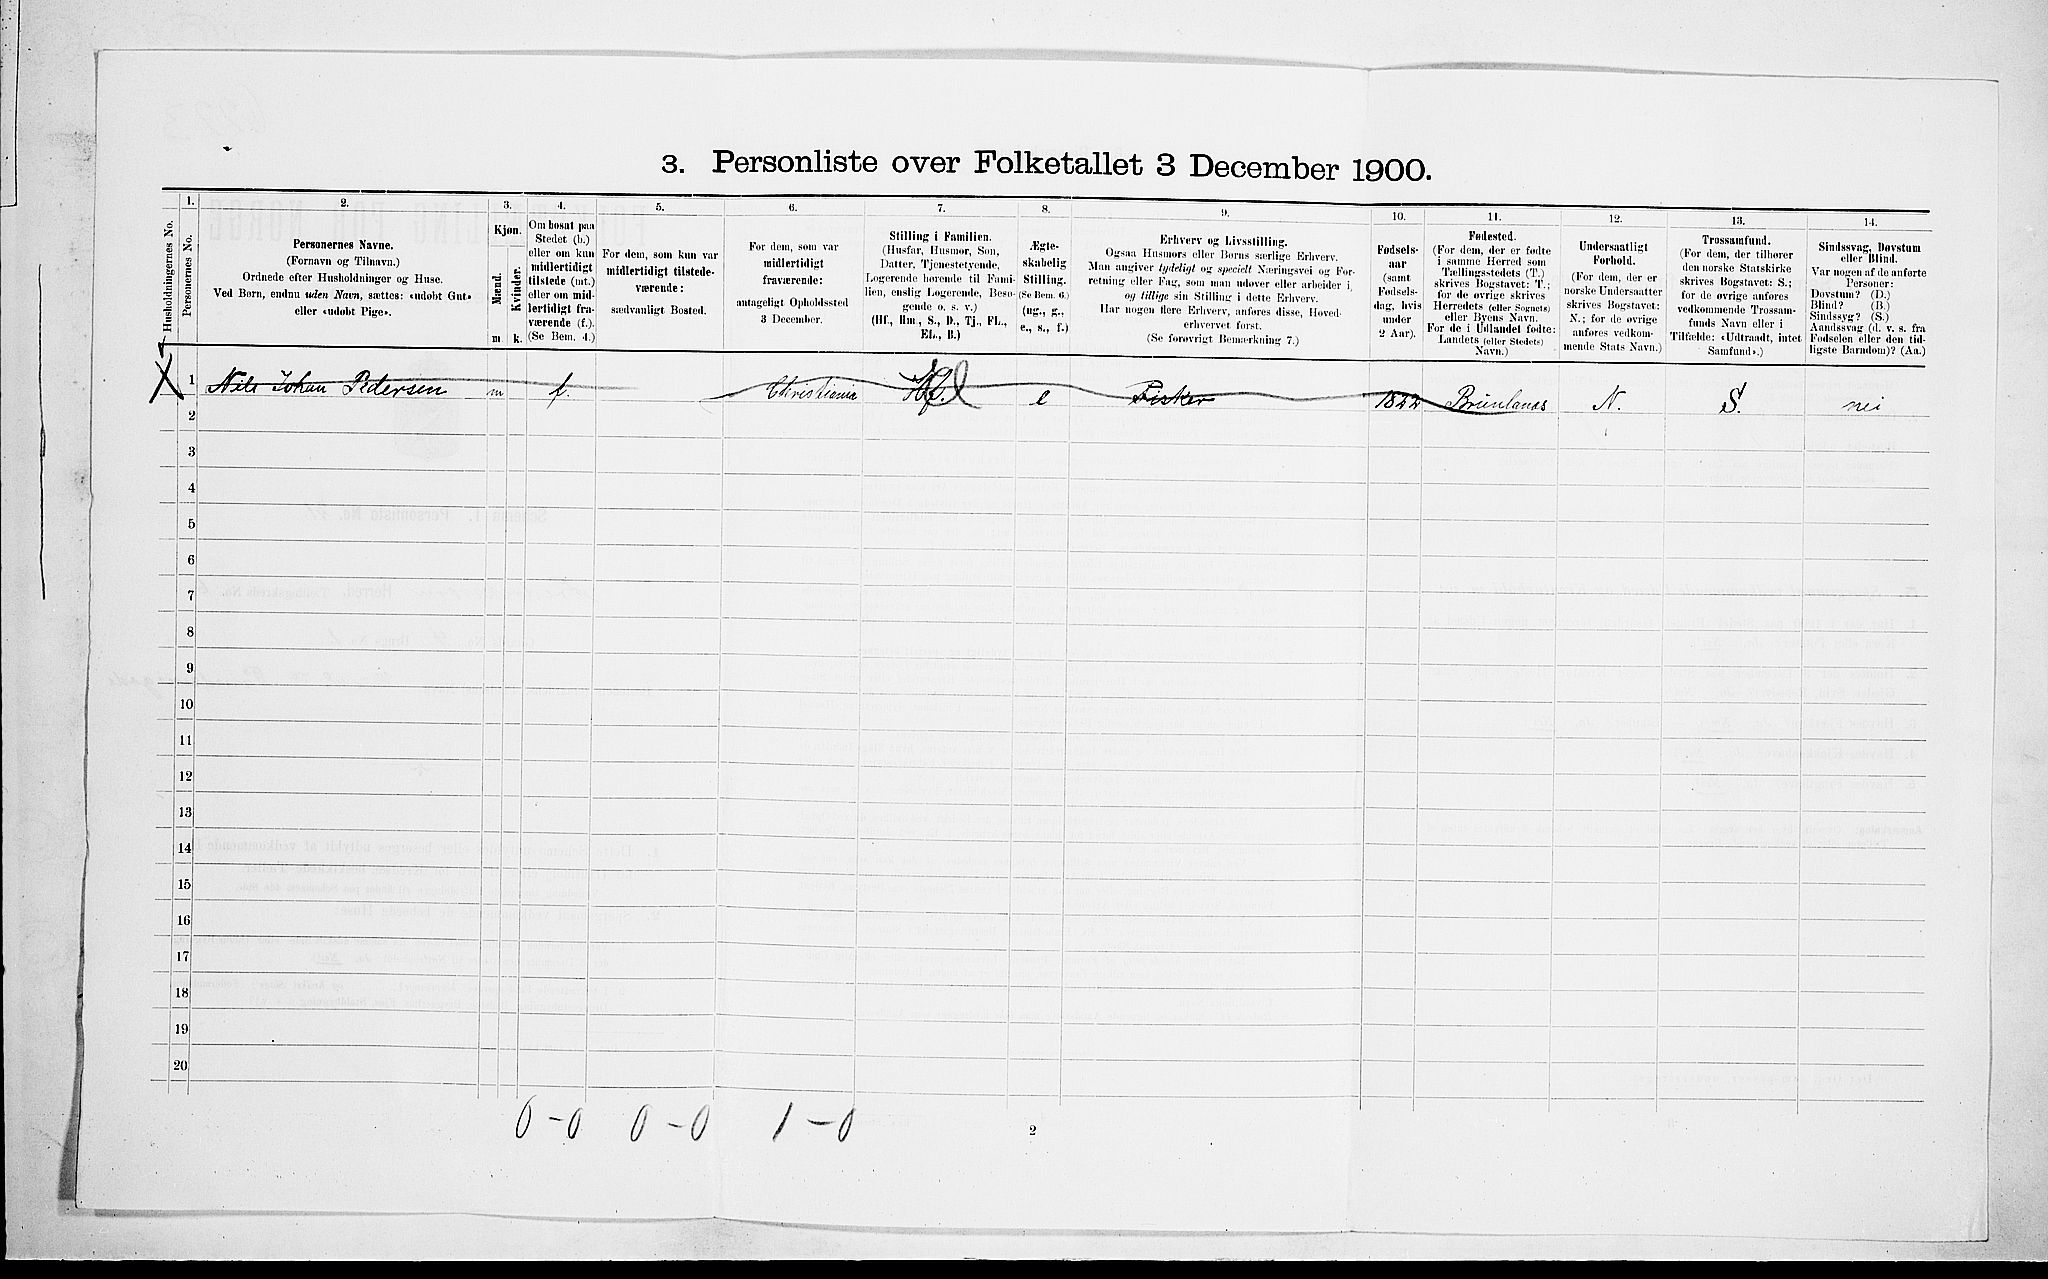 3. Personliste over Folketallet 3 December 1900.
Husholdningernes No.
1.
Personernes No.
2.
Personernes Navne.
(Fornavn og Tilnavn.)
Ordnede efter Husholdninger og Huse.
Ved Børn, endnu uden Navn, sættes: «udøbt Gut»
eller «udøbt Pige».
3.
Kjøn.
Mænd.
Kvinder.
m k.
4.
Om bosat paa
Stedet (b.)
eller om kun
midlertidigt
tilstede (mt.)
eller om mid-
lertidigt fra-
værende (f.).
(Se Bem. 4.)
5.
For dem, som kun var
midlertidigt tilstede-
værende:
sædvanligt Bosted.
6.
For dem, som var
midlertidigt
fraværende:
antageligt Opholdssted
3 December.
7.
Stilling i Familien.
(Husfar, Husmor, Søn,
Datter, Tjenestetyende,
Logerende hørende til Fami-
lien, enslig Logerende, Besø-
gende o. s. v.)
(Hf., Hm., S., D., Tj., FL.,
EL., B.)
8.
Ægte-
skabelig
Stilling.
(Se Bem. 6.)
(ug., g.,
e., s., f.)
9.
Erhverv og Livsstilling.
Ogsaa Husmors eller Børns særlige Erhverv.
Man angiver tydeligt og specielt Næringsvei og For-
retning eller Fag, som man udøver eller arbeider i,
og tillige sin Stilling i dette Erhverv.
Har nogen flere Erhverv, anføres disse, Hoved-
erhvervet først.
(Se forøvrigt Bemærkning 7.)
10.
Fødsels-
aar
(samt
Fødsels-
dag, hvis
under
2 Aar).
11.
Fødested.
(For dem, der er fødte
i samme Herred som
Tællingsstedets (T.)
skrives Bogstavet: T.;
for de øvrige skrives
Herredets (eller Sognets)
eller Byens Navn.
For de i Udlandet fødte:
Landets (eller Stedets)
Navn.)
12.
Undersaatligt
Forhold.
(For dem, der er
norske Undersaatter
skrives Bogstavet:
N.; for de øvrige
anføres vedkom-
mende Stats Navn.)
13.
Trossamfund.
(For dem, der tilhører
den norske Statskirke
skrives Bogstavet: S.;
for de øvrige anføres
vedkommende Trossam-
funds Navn eller i
Tilfælde: «Udtraadt, intet
Samfund».)
14.
Sindssvag, Døvstum
eller Blind.
Var nogen af de anførte
Personer:
Døvstum? (D.)
Blind? (B.)
Sindssyg? (S.)
Aandssvag (d. v. s. fra
Fødselen eller den tid-
ligste Barndom)? (Aa.)
X 1 Nils Johan Pedersen m f. Christiania Hf. e Fisker 1822 Brunlanæs N. S. nei
2
3
4
5
6
7
8
9
10
11
12
13
14
15
16
17
18
19
20
0-0 0-0 1-0
2